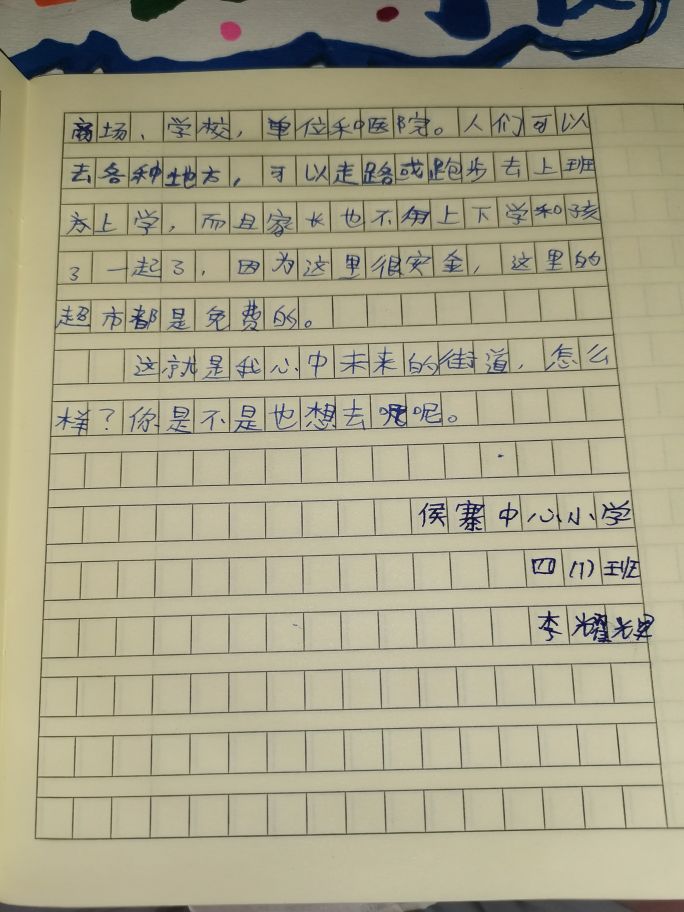 商场、学校，单位和医院。人们可以
去各种地方，可以走路或跑步去上班
为上学，而且家长也不用上下学和孩
了一起了，因为这里很安全，这里的
超市都是免费的。
这就是我心中未来的街道，怎么
样？你是不是也想去呢呢。
侯寨中心小学
四(1)班
李耀